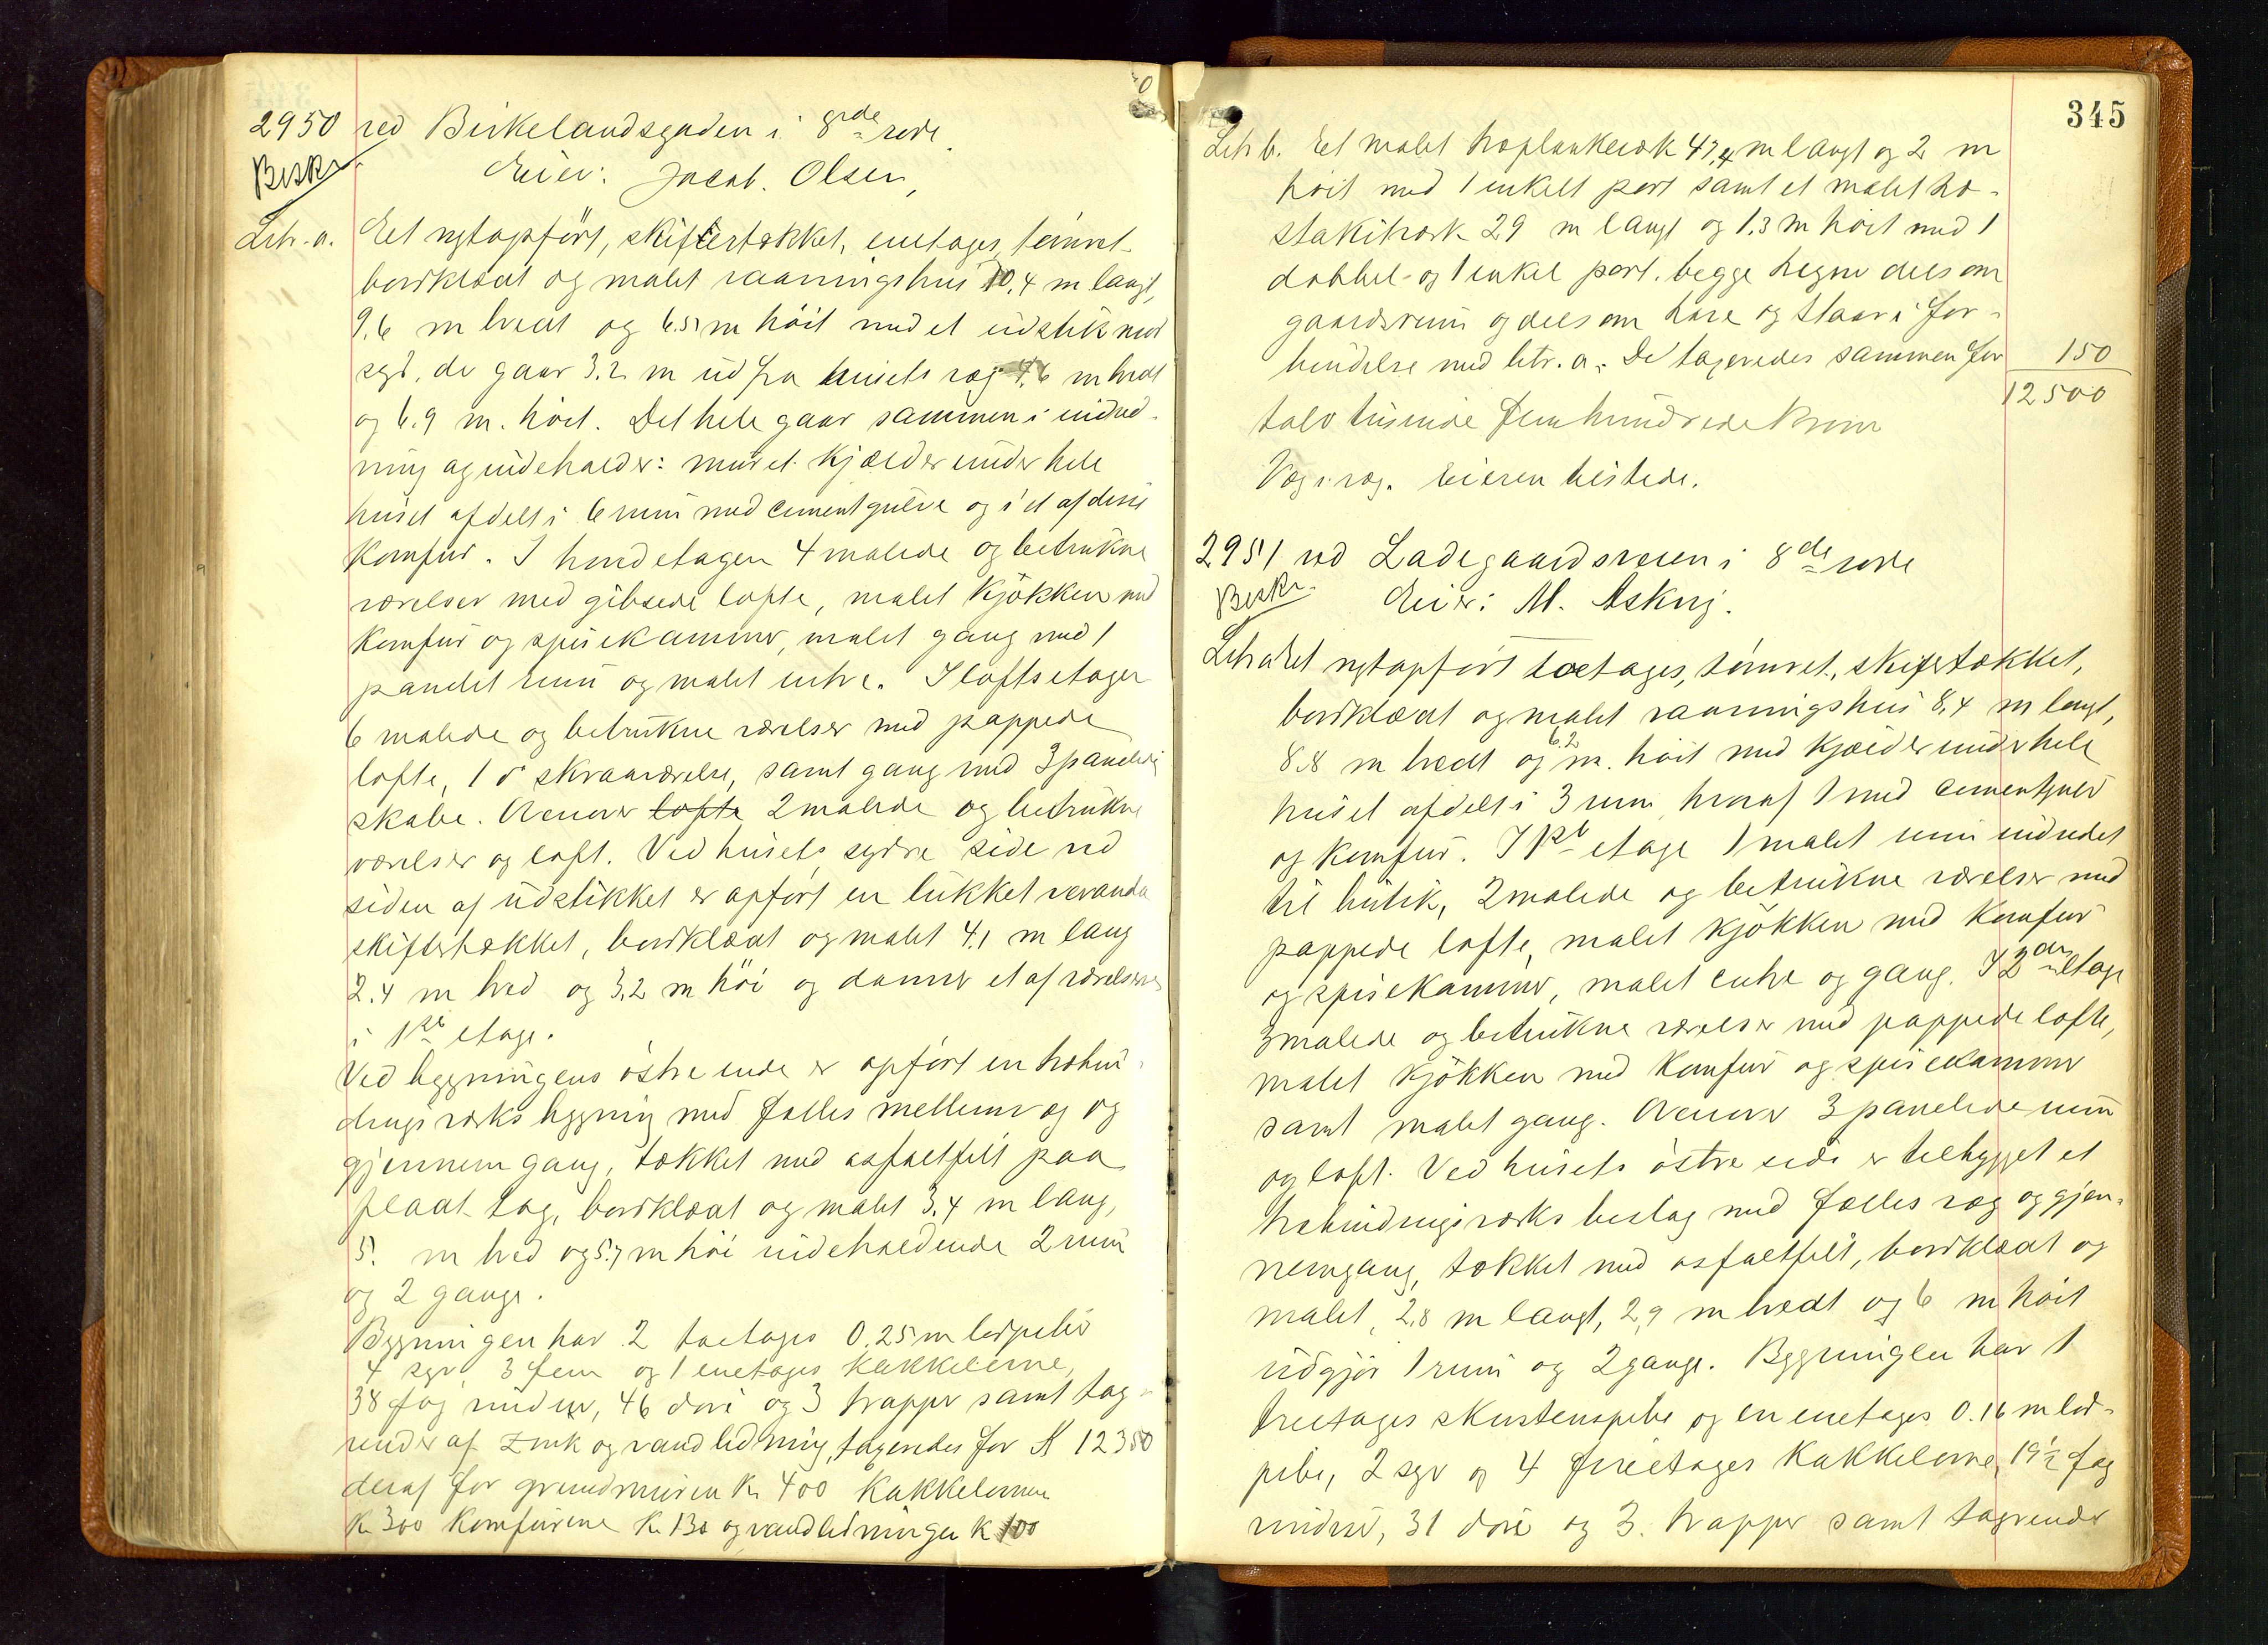 2950 ved Birkelandsgaden i 8de rode.
Beskr.
Eier: Jacob. Olsen,
Litr. a. Eet nytopført, skifertækket, enetages, tømret
bordklædt og malet vaaningshus 10.4 m langt,
9.6 m bredt og 6.5 m høit med et udstik mod
syd, der gaar 3.2 m ud fra husets væg 4.6 m bredt
og 6.9 m. høit. Det hele gaar sammen i indred-
ning og indeholder: muret kjælder under hele
huset afdelt i 6 rum med cementgulve og i et af disse
komfur. I hovedetagen 4 malede og betrukne
værelser med gibsede lofte, malet kjøkken med
komfur og spisekammer, malet gang med 1
panelet rum og malet entre. I loftsetagen
6 malede og betrukne værelser med pappede
lofte, 1 do skraaværelse, samt gang med 3 panelede
skabe. Ovenover lofte 2 malede og betrukne
værelser og loft. Ved husets søndre side ved
siden af udstikket er opført en lukket veranda
skifertækket, bordklædt og malet 4.1 m lang
2.4 m bred og 3.2 m høi og danner et af værelserne
i 1ste etage.
Ved bygningens østre ende er opført en trobin-
dingsværks bygning med fælles mellemvæg og
gjennemgang, tækket med asfaltfilt paa
fladt tag, bordklædt og malet 3.4 m lang,
5. m bred og 5.7 m høi indeholdende 2 rum
og 2 gange.
Bygningen har 2 toetages 0.25 m lodpiber
4 syv, 3 fem og 1 enetages kakkelovne,
38 fag vinduer, 46 døre og 3 trapper samt tag-
render af zink og vandledning, taxeredes for K 12350
deraf for grundmuren Kr 400 kakkelovnene
Kr 300 komfurene Kr 130 og vandledningen K 100
345
Litr b. Et malet træplankeværk 47,4 m langt og 2 m
høit med 1 enkelt port samt et malet træ-
stakitværk 29 m langt og 1.3 m høit med 1
dobbel- og 1 enkel port. begge hegne dels om
gaardsrum og dels om have og staar i for-
bindelse med litr. a. De taxeredes sammen for 150
12500
tolv tusinde fem hundrede kroner
Væg i væg. Eieren tilstede.
2951 ved Ladegaardsveien i 8de rode
Beskr.
Eier: M. Askvig.
Litr a Et nytopført toetages, tømret, skifertækket,
bordklædt og malet vaaningshus 8.4 m langt,
8.8 m bredt og 6.2 m. høit med kjælder under hele
huset afdelt i 3 rum hvoraf 1 med cementgulv
og komfur. I 1ste etage 1 malet rum indredet
til butik, 2 malede og betrukne værelser med
pappede lofte, malet kjøkken med komfur
og spisekammer, malet entre og gang. I 2den etage
3 malede og betrukne værelser med pappede lofte,
malet kjøkken med komfur og spisekammer
samt malet gang. Ovenover 3 panelede rum
og loft. Ved husets østre side er tilbygget et
træbindingsværks beslag med fælles væg og gjen-
nemgang, tækket med asfaltfilt, bordklædt og
malet, 2.8 m langt, 2,9 m bredt og 6 m høit
udgjør 1 rum og 2 gange. Bygningen har 1
treetages skorstenspibe og en enetages 0.16 m lod-
pibe, 2 syv og 4 fireetages kakkelovne, 19½ fag
vinduer, 31 døre og 3. trapper samt tagrender